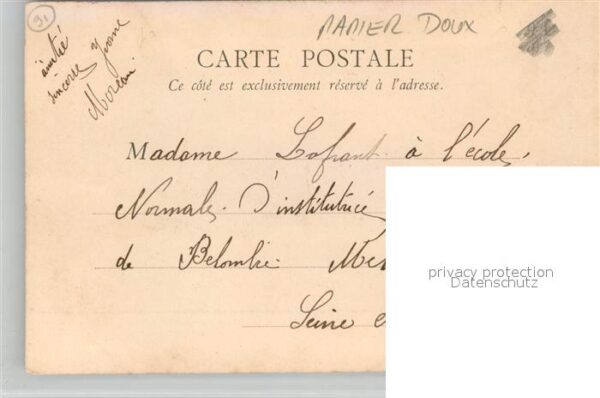 91
PAPIER DOUX
amitié
sincère Yvonne
Moreau
CARTE POSTALE
Ce côté est exclusivement réservé à l'adresse.
Madame à l'école
Normale D'institutrice
de
Seine
privacy protection
Datenschutz